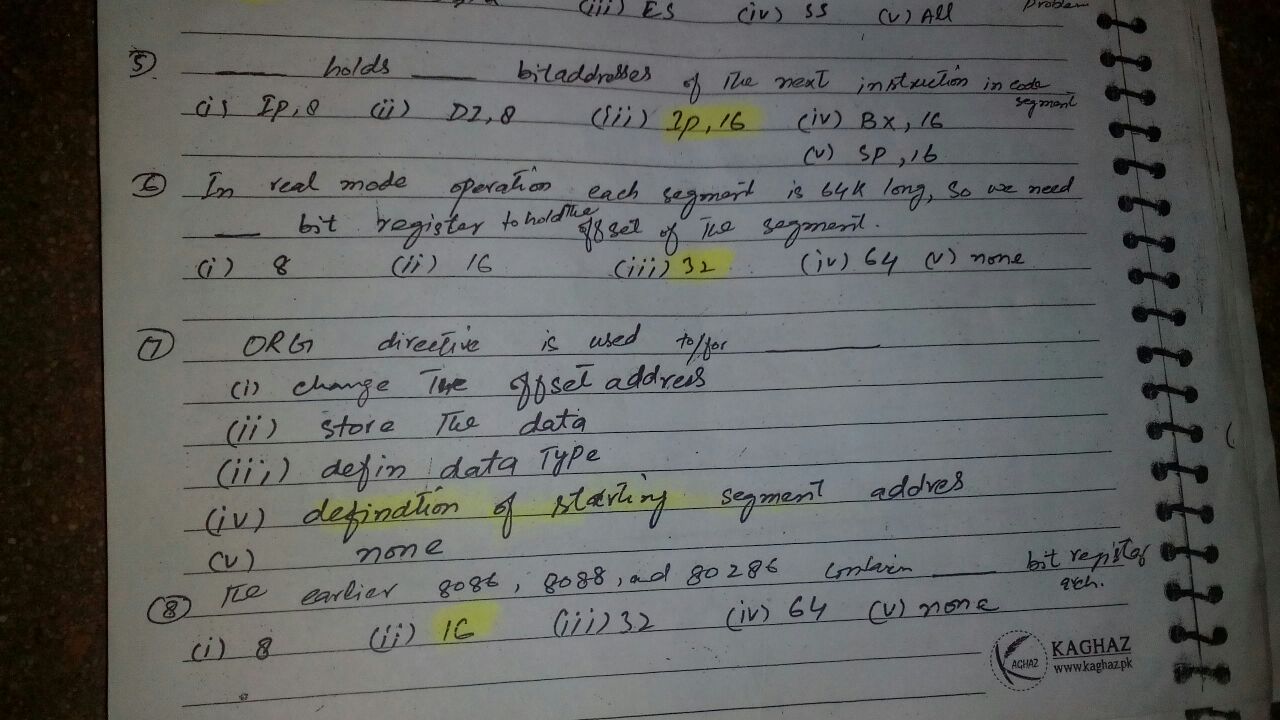 (iii) ES (iv) SS (v) All Problem
⑤ ____ holds ____ bit addresses of the next instruction in code segment
(i) IP, 8 (ii) DI, 8 (iii) IP, 16 (iv) Bx, 16
(v) SP, 16
⑥ In real mode operation each segment is 64K long, so we need
____ bit register to hold the offset of the segment.
(i) 8 (ii) 16 (iii) 32 (iv) 64 (v) none
⑦ ORG directive is used to/for ____
(i) change the offset address
(ii) store the data
(iii) defin data Type
(iv) defination of starting segment addres
(v) none
⑧ The earlier 8086, 8088, and 80286 contain ____ bit register
each.
(i) 8 (ii) 16 (iii) 32 (iv) 64 (v) none
KAGHAZ
AGHAZ
www.kaghaz.pk